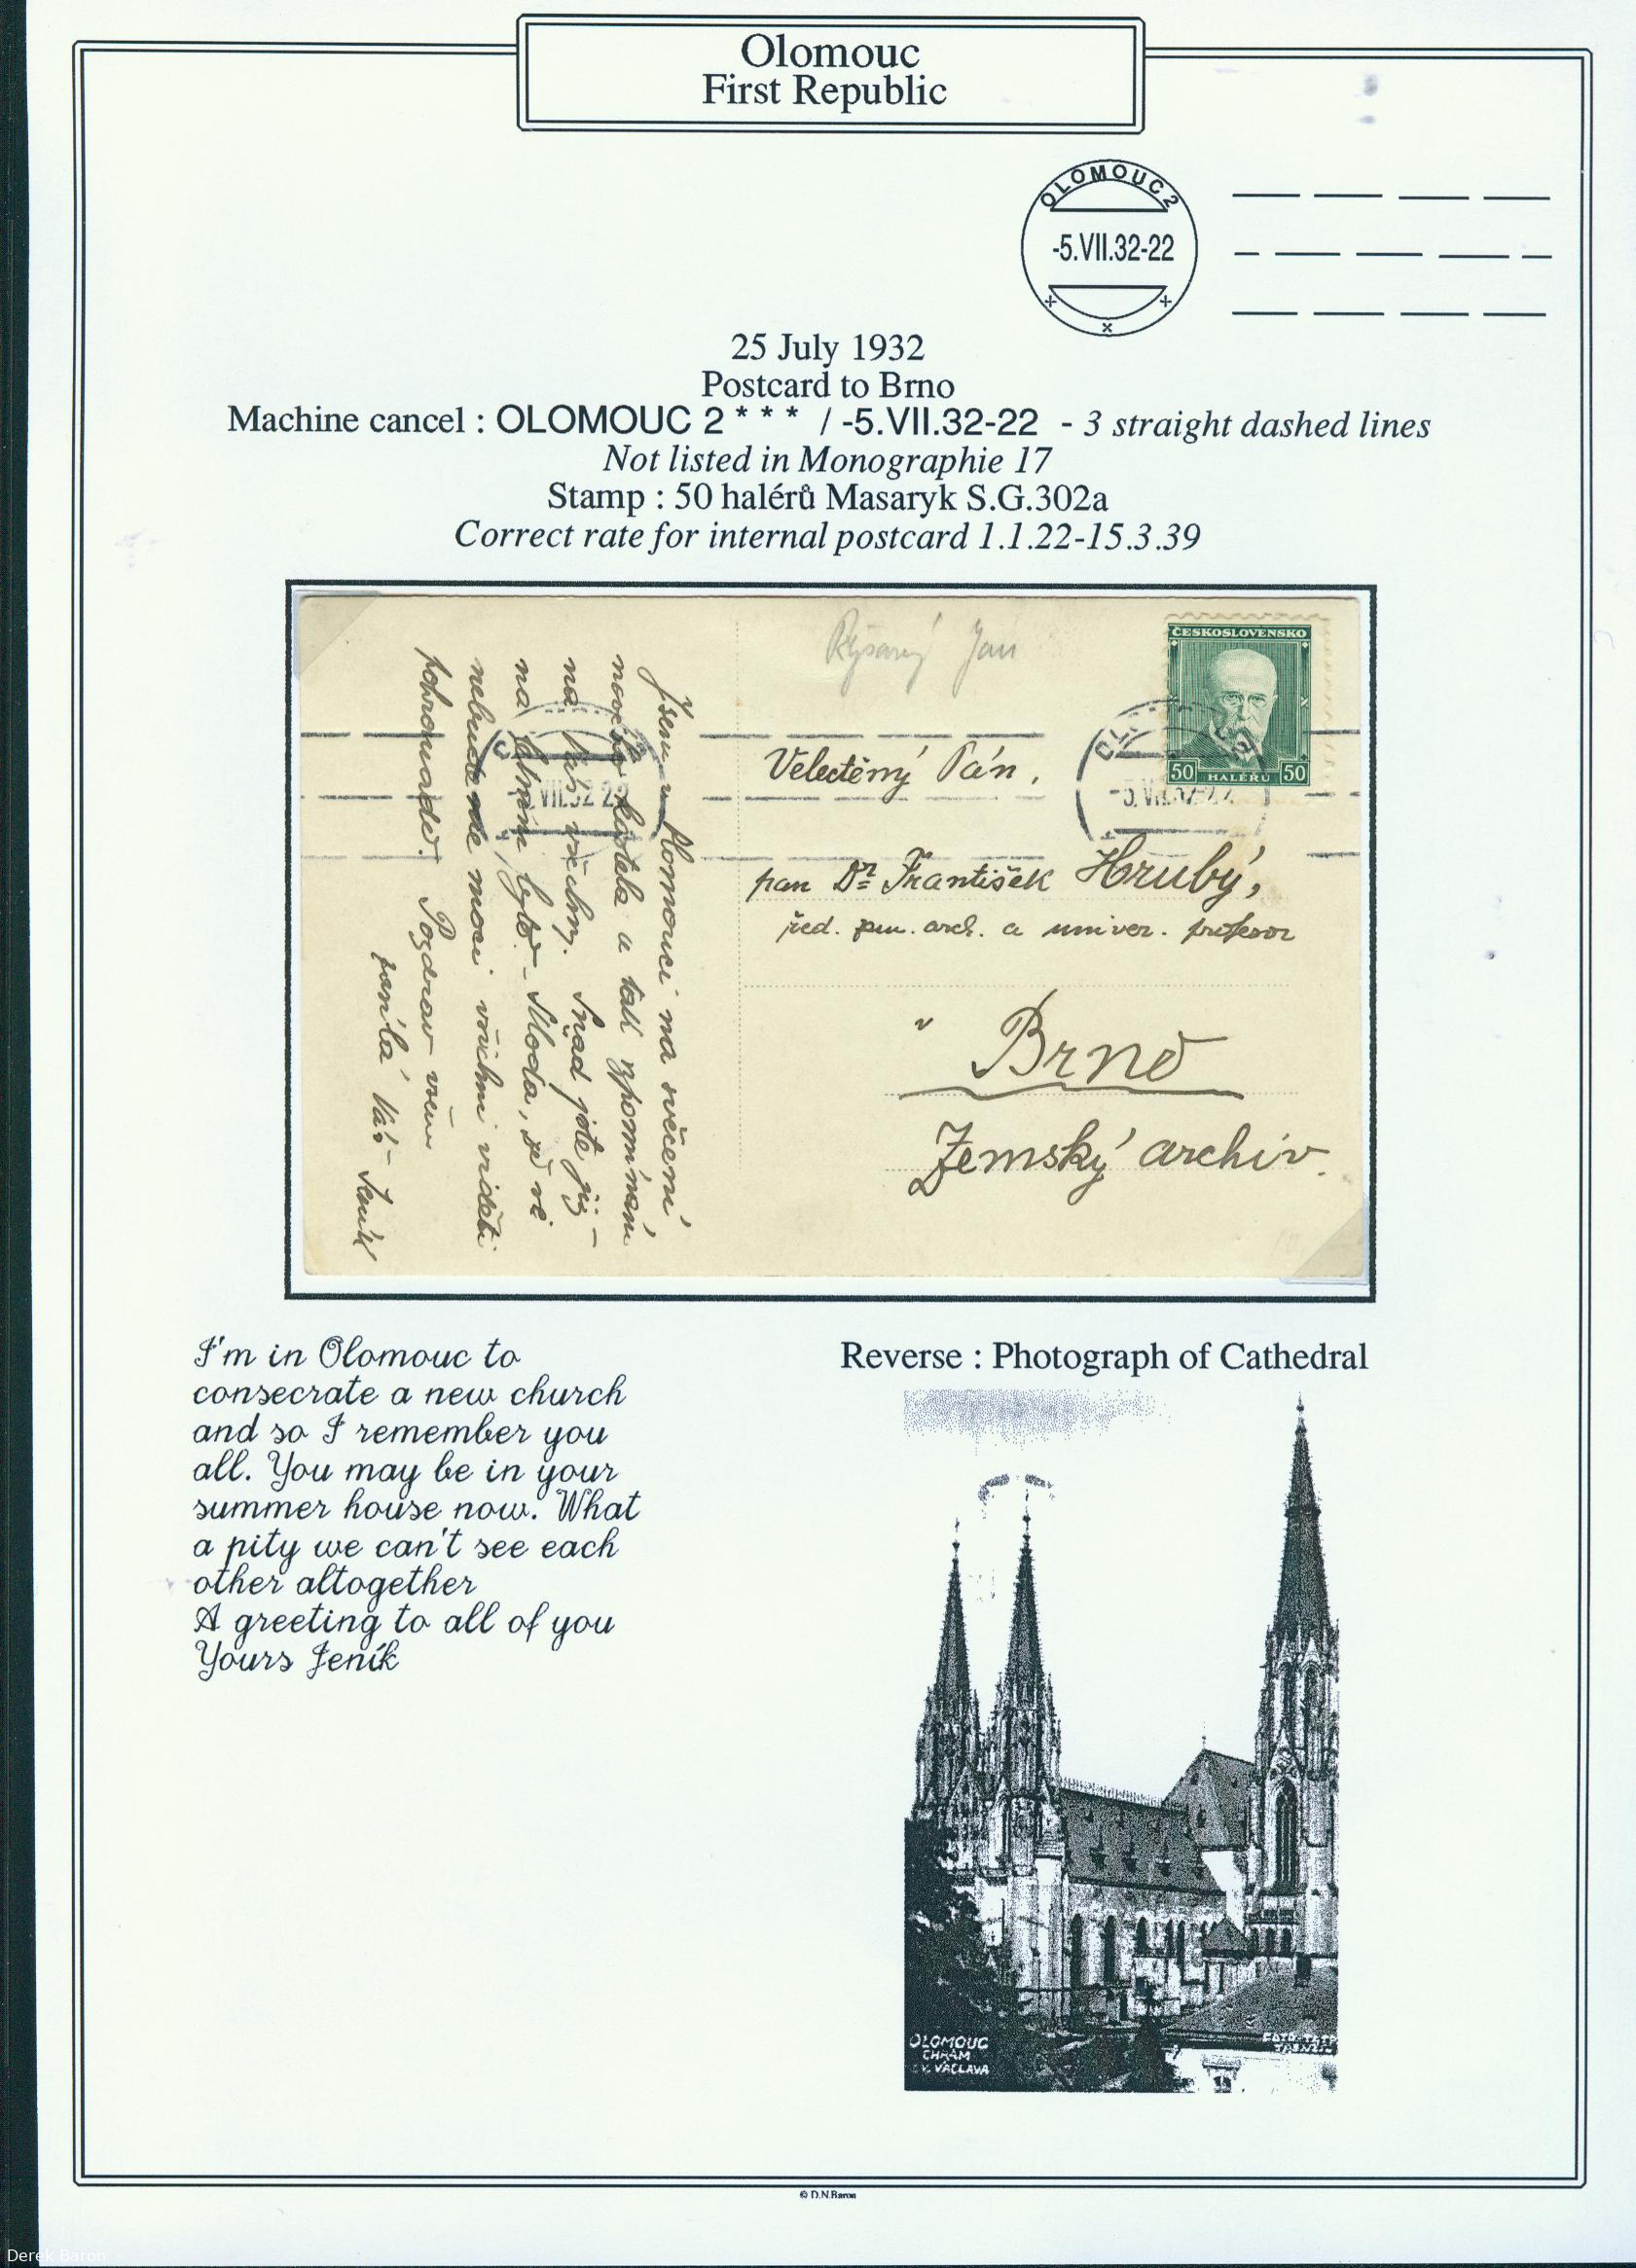 Olomouc
First Republic
OLOMOUC 2
-5.VII.32-22
25 July 1932
Postcard to Brno
Machine cancel : OLOMOUC 2 * * * / -5.VII.32-22 - 3 straight dashed lines
Not listed in Monographie 17
Stamp : 50 halérů Masaryk S.G.302a
Correct rate for internal postcard 1.1.22-15.3.39
Jan
ČESKOSLOVENSKO
50 HALÉŘŮ 50
Velectěný Pán,
pan Dr František Hrubý,
řed. zem. arch. a univer. profesor
v Brno
Zemský archiv.
Jsem v Olomouci na svěcení
nového kostela a tak vzpomínám
na Vás všechny. Snad jste již –
na letním bytě. – Škoda, že se
nebudeme moci všichni viděti
pohromadě. Pozdrav všem
Váš – Jeník
VII.32-22
I'm in Olomouc to
consecrate a new church
and so I remember you
all. You may be in your
summer house now. What
a pity we can't see each
other altogether
A greeting to all of you
Yours Jeník
Reverse : Photograph of Cathedral
OLOMOUC
CHRÁM
SV. VÁCLAVA
© D.N.Baron
Derek Baron